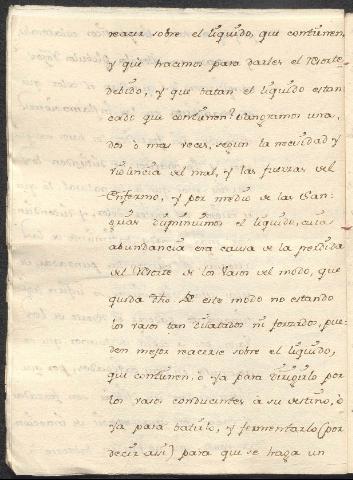 reacir sobre el liquido, que contienen,
y que hacimos para darles el Resorte
debido, y que batan el liquido estan
cado que contienen? Sangramos una,
dos o mas veces, segun la necesidad y
violencia del mal, y las fuerzas del
Enfermo, y por medio de las San-
grias disminuimos el liquido, cuia
abundancia era causa de la perdida
del Resorte de los vasos del modo, que
queda dho. De este modo no estando
los vasos tan dilatados ni forzados, pue-
den mejor reacirse sobre el liquido,
que contienen, o ya para dirigirlo por
los vasos conducentes à su destino, ò
ya para batirlo, y fermentarlo (por
decir asi) para que se haga un